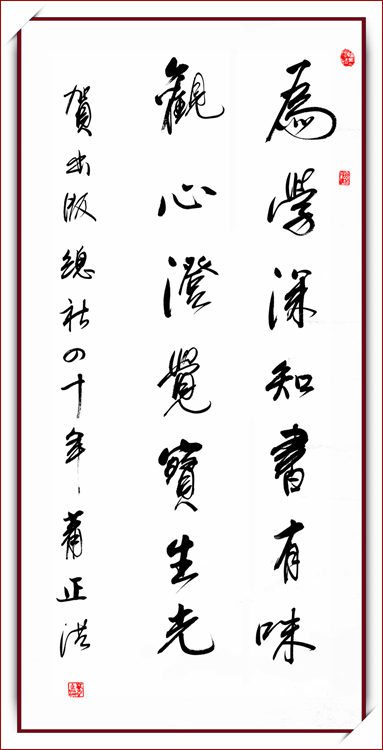 為學深知書有味
觀心澄覺寶生光
賀出版總社四十年 蕭正洪